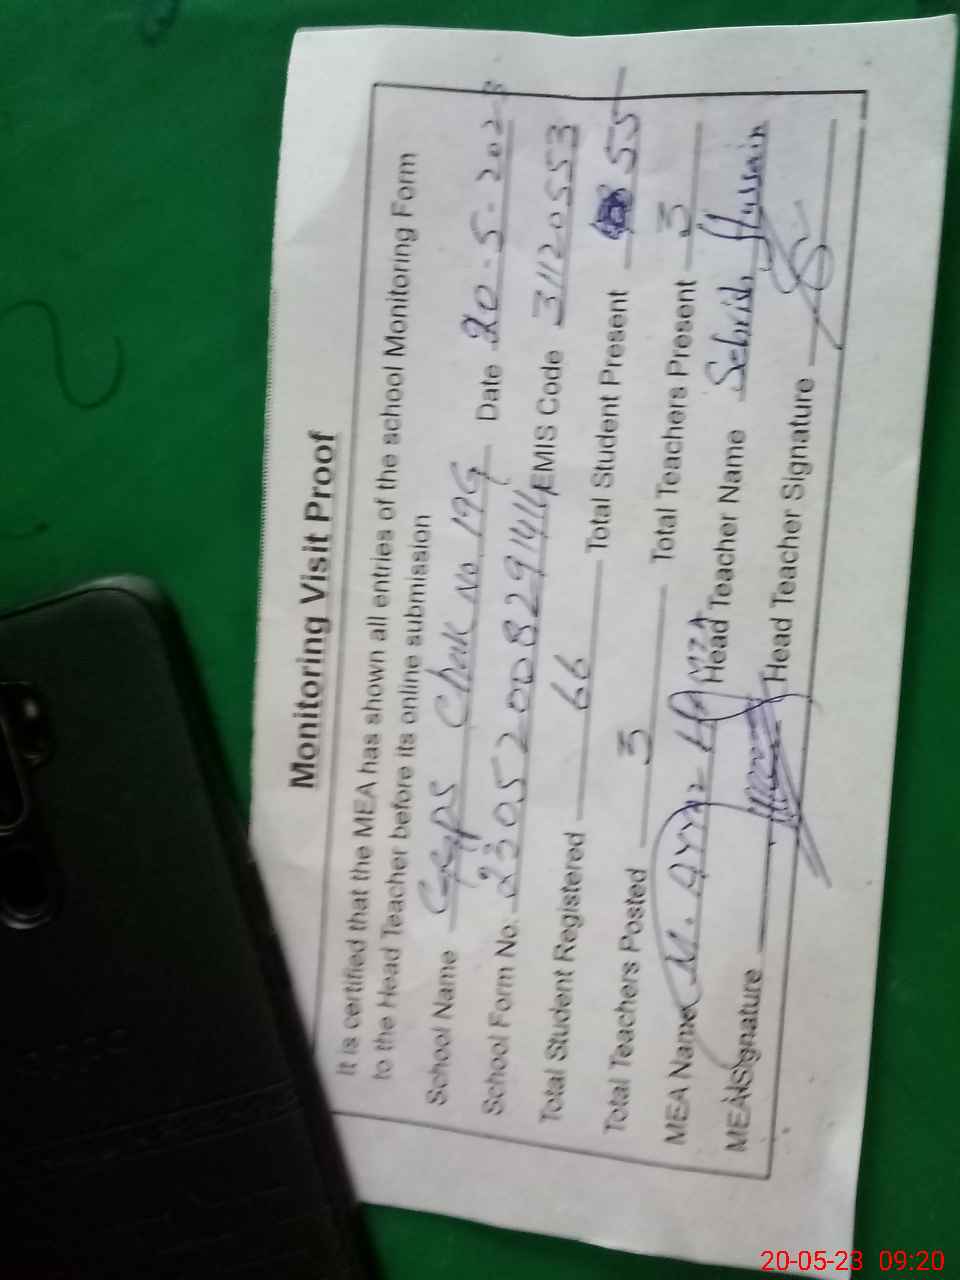 Monitoring Visit Proof
It is certified that the MEA has shown all entries of the school Monitoring Form
to the Head Teacher before its online submission
School Name GGPS Chak No. 19G Date 20-5-2023
School Form No: 23052008291414 EMIS Code 31120553
Total Student Registered 66 Total Student Present 55
Total Teachers Posted 3 Total Teachers Present 3
MEA Name M. Ayyaz HAMZA Head Teacher Name Sehrish Hussain
MEA Signature Head Teacher Signature
20-05-23 09:20